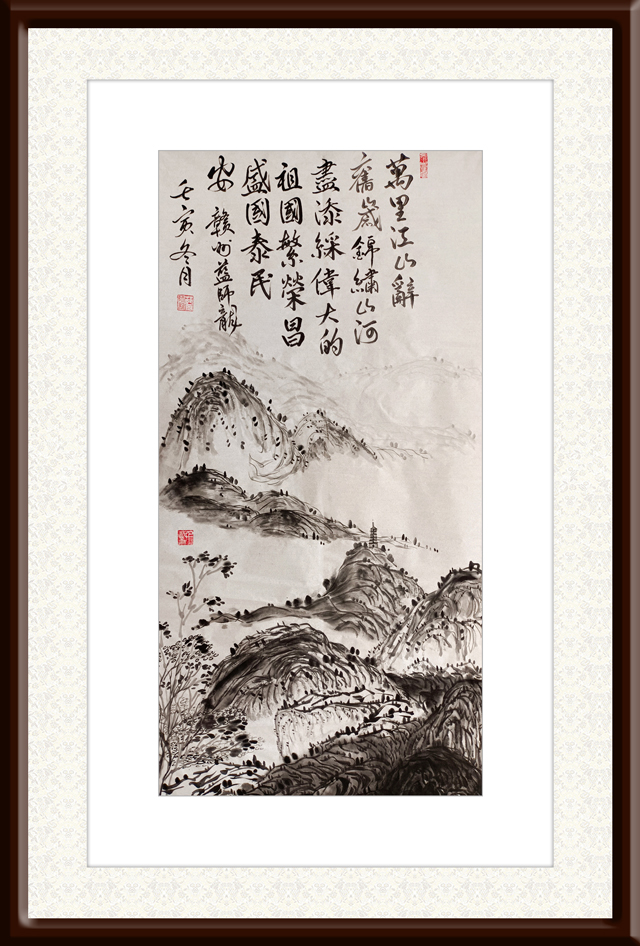 萬里江山辭
舊歲錦繡山河
盡添綵偉大的
祖國繁榮昌
盛國泰民
安 贛州益師龍
壬寅冬月